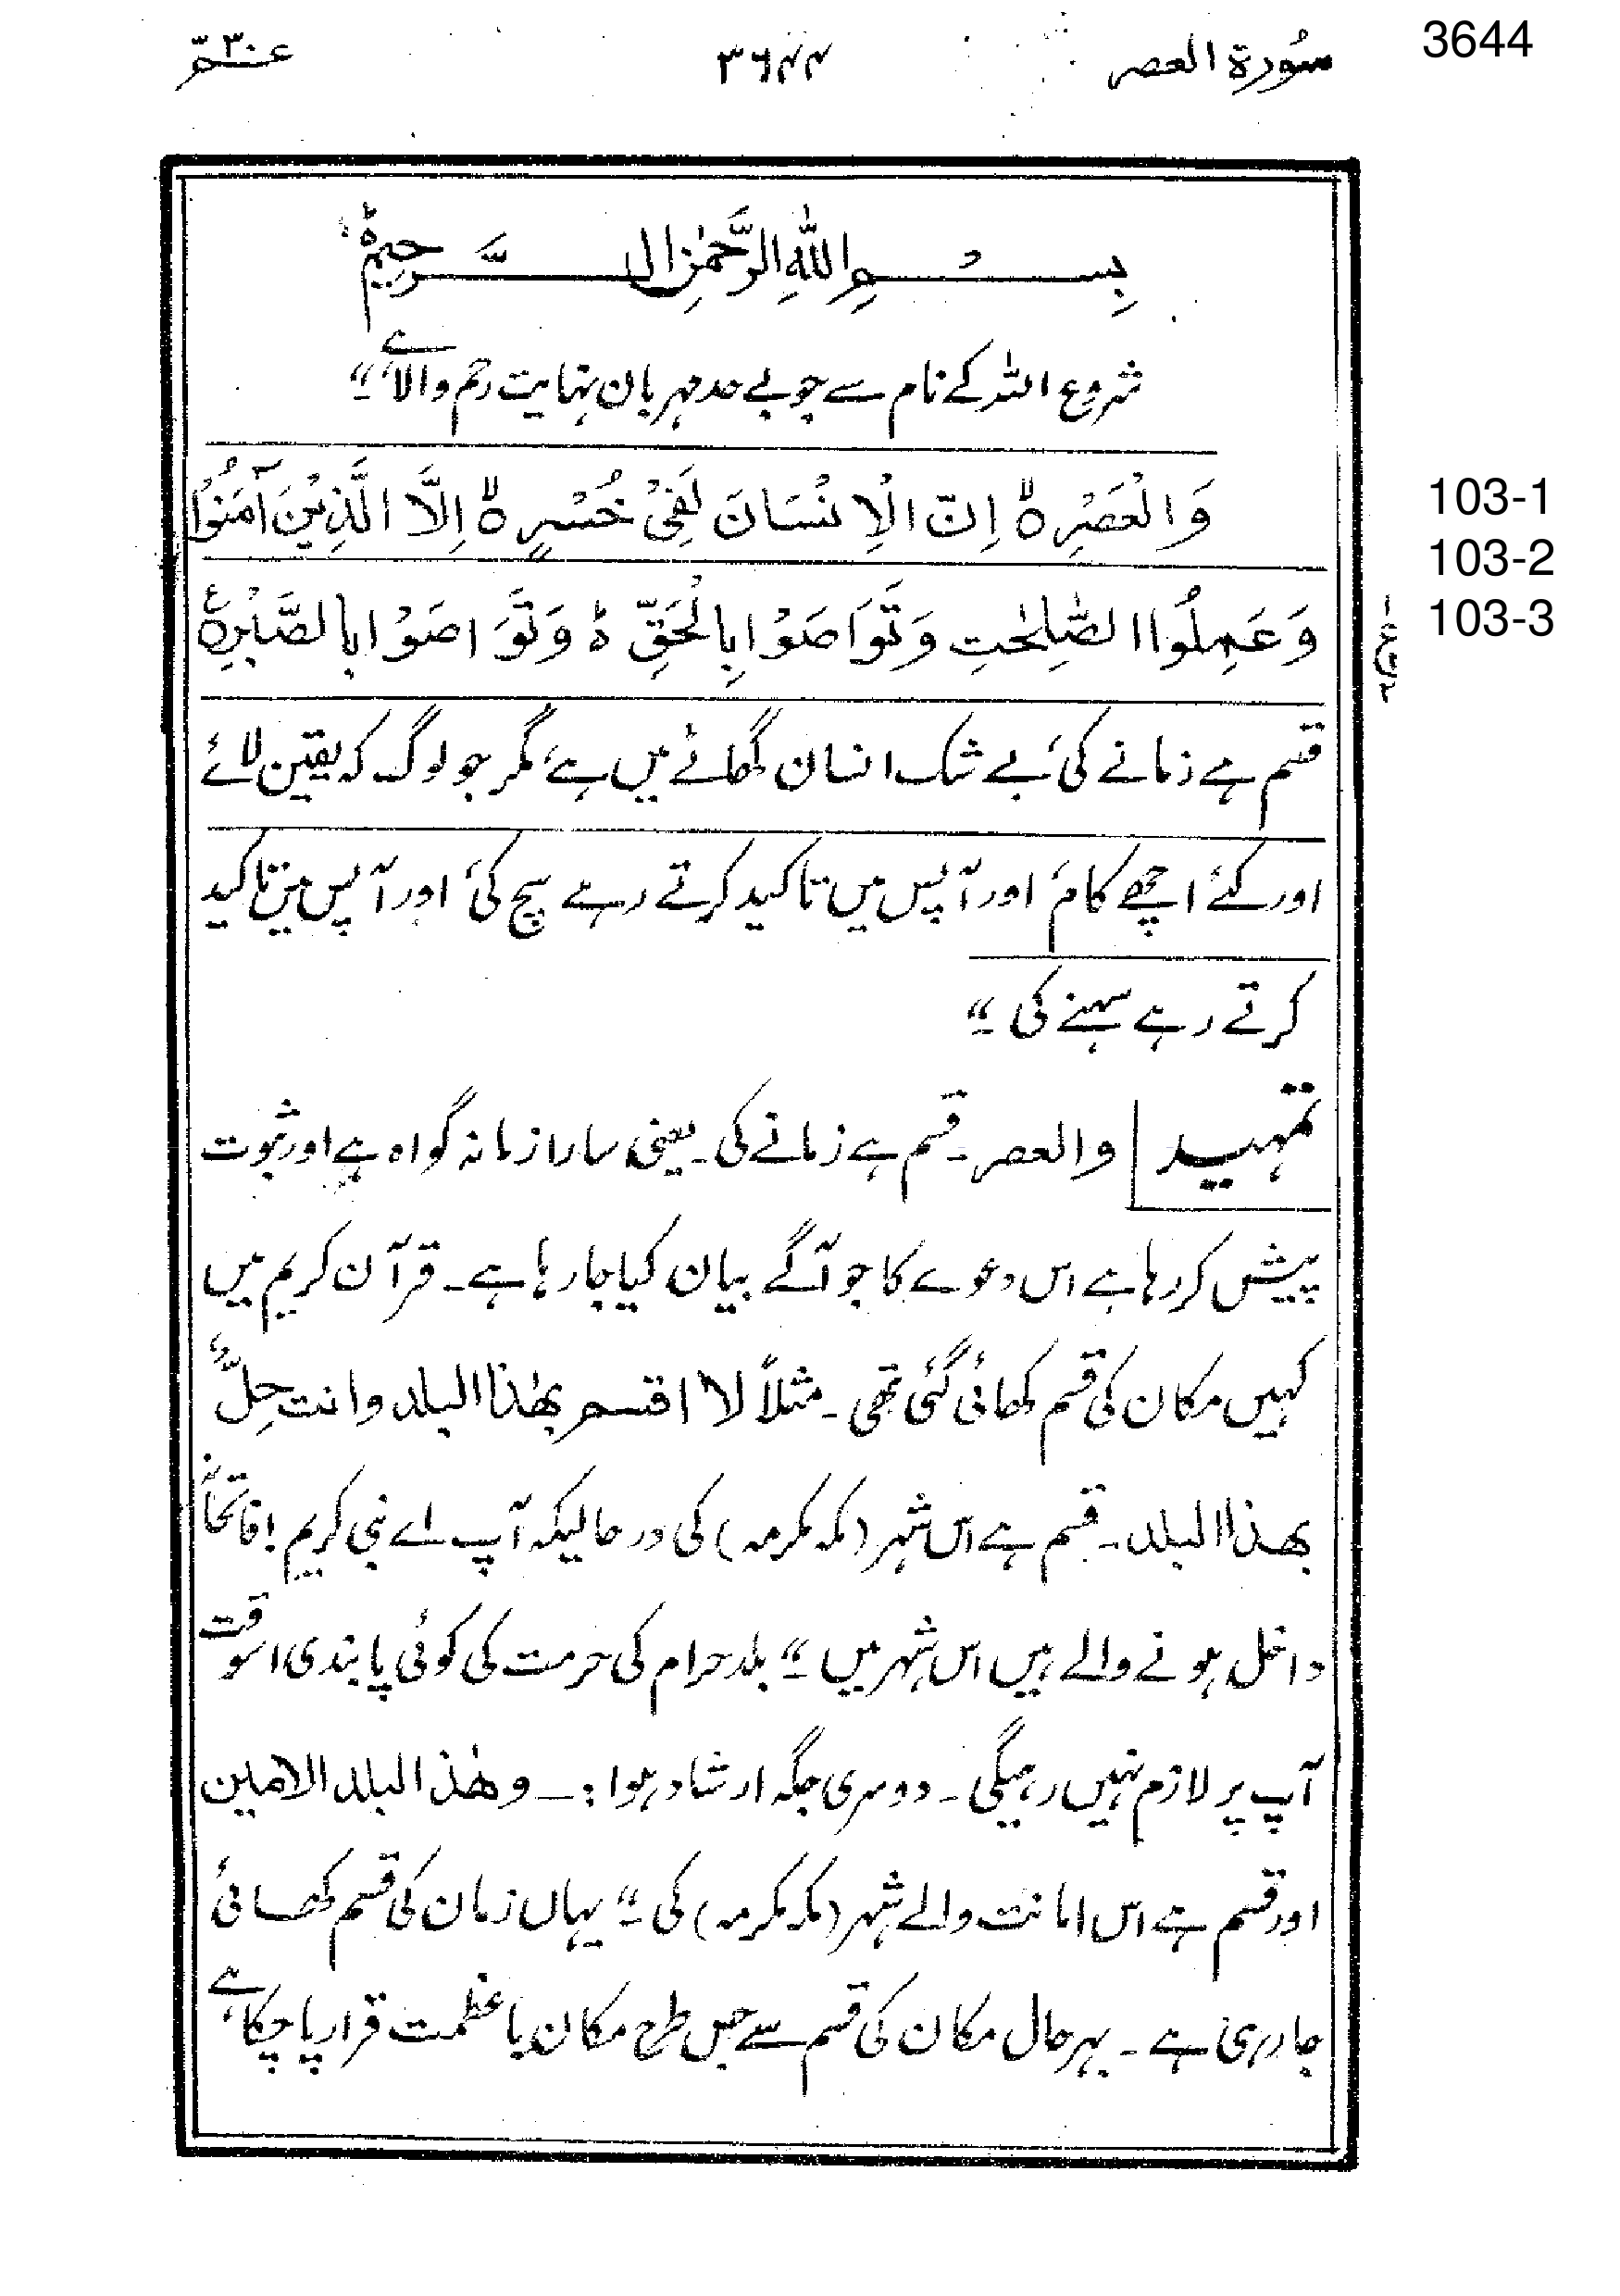 سُورة العصر ۳٦۴۴ عـ۳۰ـمّ 3644
بِسْمِ اللّٰهِ الرَّحْمٰنِ الرَّحِيمِ
شروع اللہ کے نام سے جو بے حد مہربان نہایت رحم والا ہے“
وَالْعَصْرِ ۙ اِنَّ الْاِنْسَانَ لَفِیْ خُسْرٍ ۙ اِلَّا الَّذِیْنَ آمَنُوْا 103-1
103-2
وَعَمِلُوا الصّٰلِحٰتِ وَتَوَاصَوْا بِالْحَقِّ ۙ وَتَوَاصَوْا بِالصَّبْرِ 103-3
قسم ہے زمانے کی، بے شک انسان گھاٹے میں ہے، مگر جو لوگ کہ یقین لائے
اور کئے اچھے کام، اور آپس میں تاکید کرتے رہے سچ کی، اور آپس میں تاکید
کرتے رہے سہنے کی ۔“
تمہید والعصر ۔ قسم ہے زمانے کی ۔ یعنی سارا زمانہ گواہ ہے اور ثبوت
پیش کر رہا ہے اس دعوے کا جو آگے بیان کیا جا رہا ہے ۔ قرآن کریم میں
کہیں مکان کی قسم کھائی گئی تھی ۔ مثلاً لا اقسم بهٰذا البلد وانت حِلٌّ
بهذا البلد ۔ قسم ہے اس شہر (مکہ مکرمہ) کی درحالیکہ آپ اے نبی کریم! فاتحاً
داخل ہونے والے ہیں اس شہر میں ۔“ بلد حرام کی حرمت کی کوئی پابندی اسوقت
آپ پر لازم نہیں رہیگی ۔ دوسری جگہ ارشاد ہوا :۔ وهٰذا البلد الامین
اور قسم ہے اس امانت والے شہر (مکہ مکرمہ) کی ۔“ یہاں زمان کی قسم کھائی
جا رہی ہے ۔ بہر حال مکان کی قسم سے جس طرح مکان باعظمت قرار پا چکا ہے،